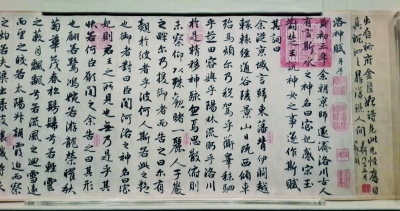 洛神賦
黄初三年余朝京師還濟洛川古人
有言斯水之神名曰宓妃感宋玉
對楚王神女之事遂作斯賦
其詞曰
余從京域言歸東藩背伊闕越
轘轅經通谷陵景山日既西傾車
殆馬煩尔乃税駕乎蘅皋秣駟
乎芝田容與乎陽林流眄乎洛川
於是精移神駭忽焉思散俯則
未察仰以殊觀睹一麗人于巖
之畔尔乃援御者而告之曰尔有
覿於彼者乎彼何人斯若此之艷
也御者對曰臣聞河洛之神名曰宓
妃則君王之所見也無乃是乎其
狀若何臣願聞之余告之曰其形
也翩若驚鴻婉若游龍榮曜秋
菊華茂春松髣髴兮若輕雲
之蔽月飄飄兮若流風之迴雪遠
而望之皎若太陽升朝霞迫而察
之灼若芙蕖